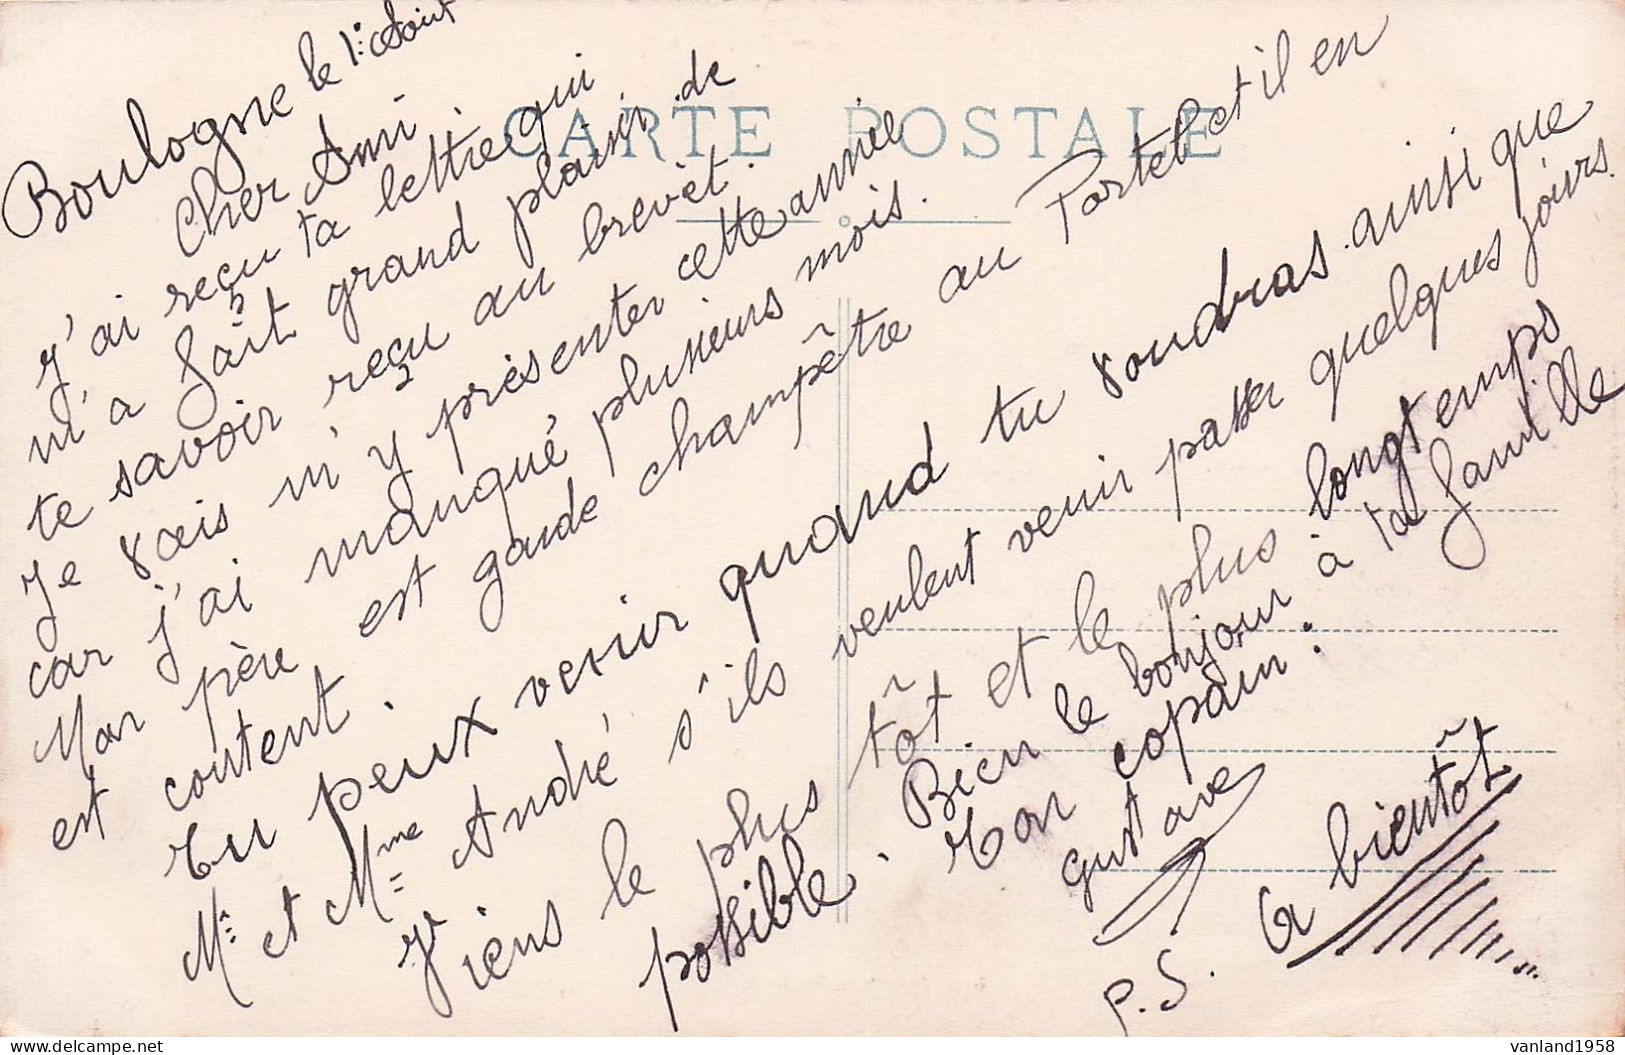 CARTE POSTALE
Boulogne le 1er Août
Cher Ami
J'ai reçu ta lettre qui
m'a fait grand plaisir de
te savoir reçu au brevèt.
Je vais m'y présenter cette année
car j'ai manqué plusieurs mois.
Mon père est garde champêtre au Portel et il en
est content.
Tu peux venir quand tu voudras ainsi que
Mr et Mme André s'ils veulent venir passer quelques jours.
Viens le plus tôt et le plus longtemps
possible. Bien le bonjour à ta famille
Ton copain:
gustave
P.S. A bientôt
vanland1958